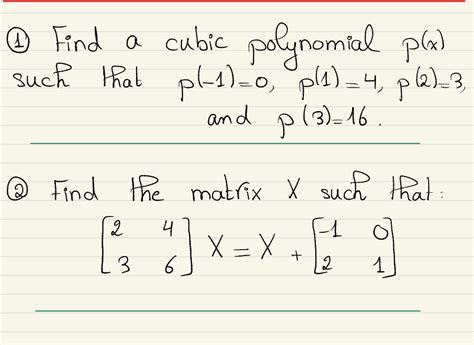 ① Find a cubic polynomial p(x)
such that p(-1)=0, p(1)=4, p(2)=3,
and p(3)=16.
② Find the matrix X such that:
[2 4
3 6] X = X + [-1 0
2 1]